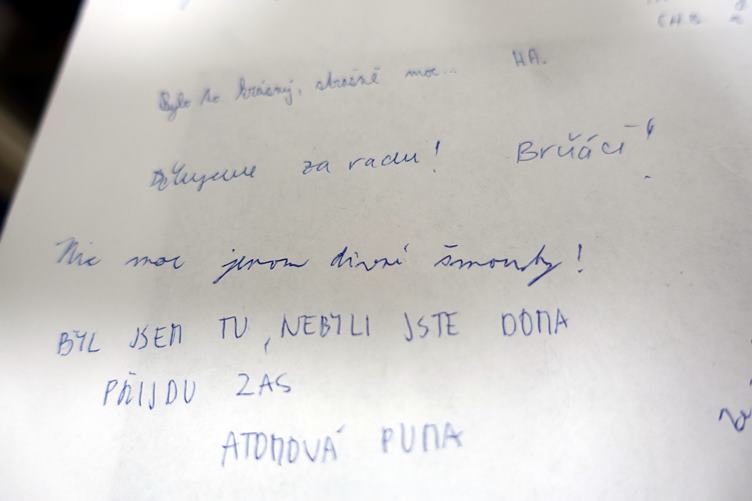 Bylo to krásný, strašně moc... HA.
Děkujeme za radu! Brňáci!
Nic moc jenom divní šmouhy!
BYL JSEM TU, NEBYLI JSTE DOMA
PŘIJDU ZAS
ATOMOVÁ PUMA